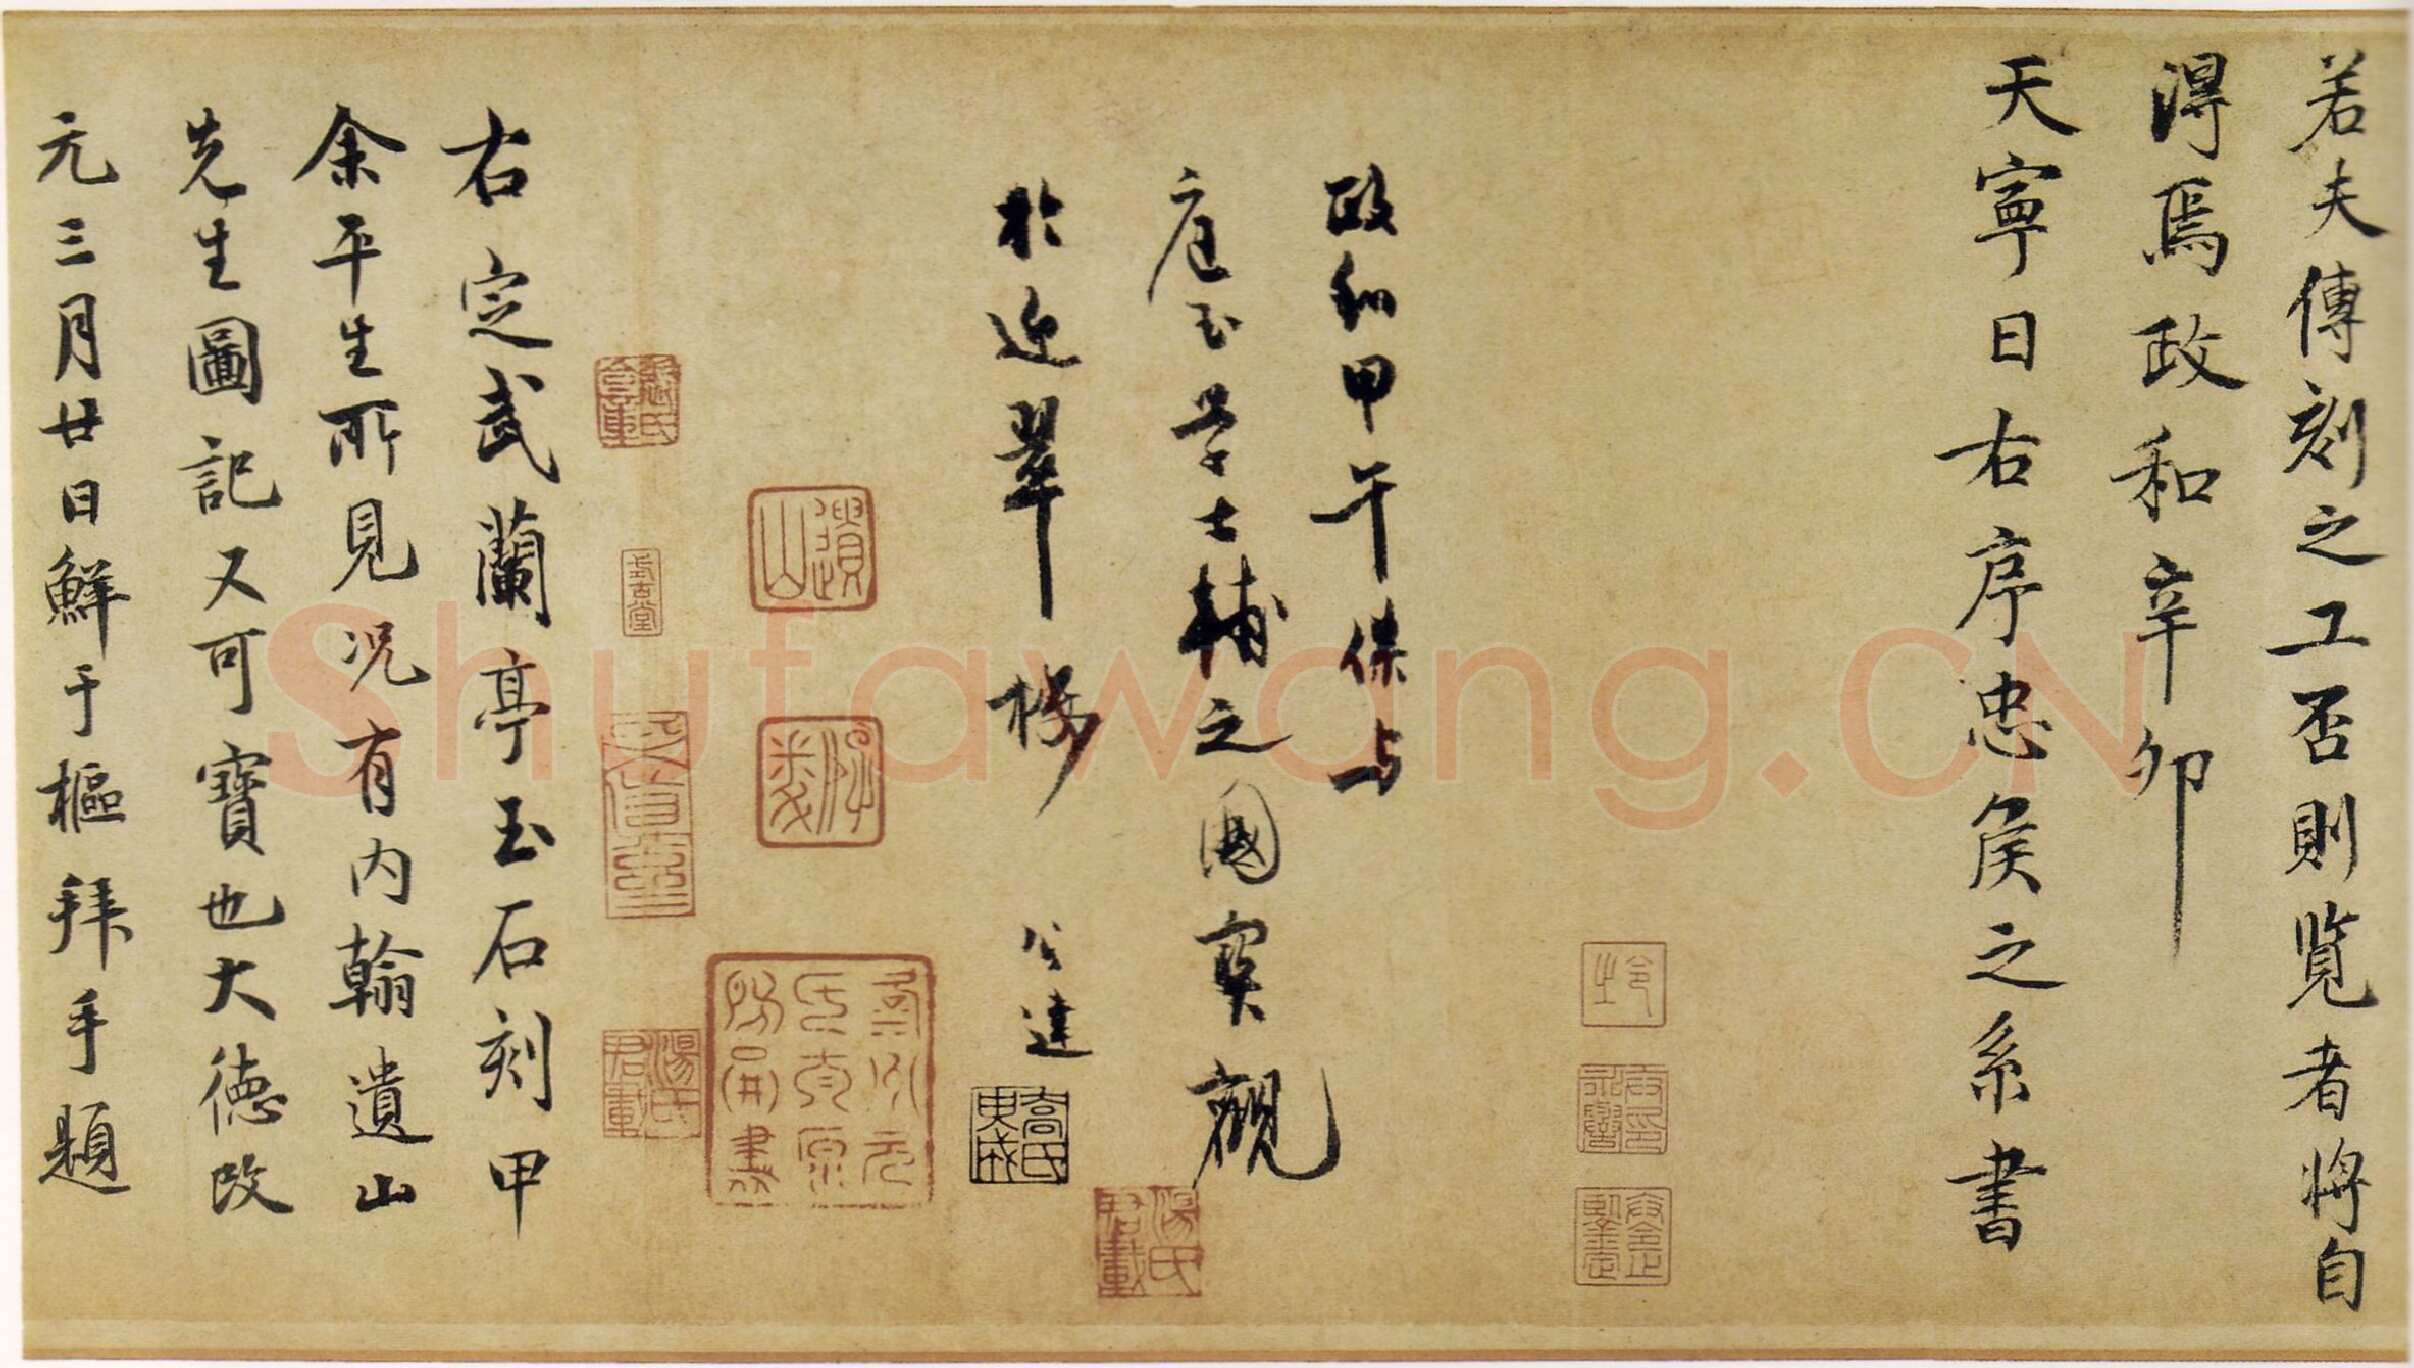 若夫傳刻之工否則覽者將自
得焉政和辛卯
天寧日右序忠侯之系書
政和甲午保與
唐玉學士輔之國寶觀
於迎翠樓 公達
遺山
右定武蘭亭玉石刻甲
余平生所見況有內翰遺山
先生圖記又可寶也大德改
元三月廿日鮮于樞拜手題
Shufawang.CN